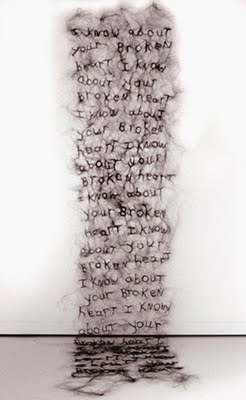 I know about
your Broken
heart I know
about your
Broken heart
I know about
your Broken
heart I know
about your
Broken heart
I know about
your BRoken
heart I know
about your
Broken heart
I know about
your Broken
heart I know
about your
Broken heart I